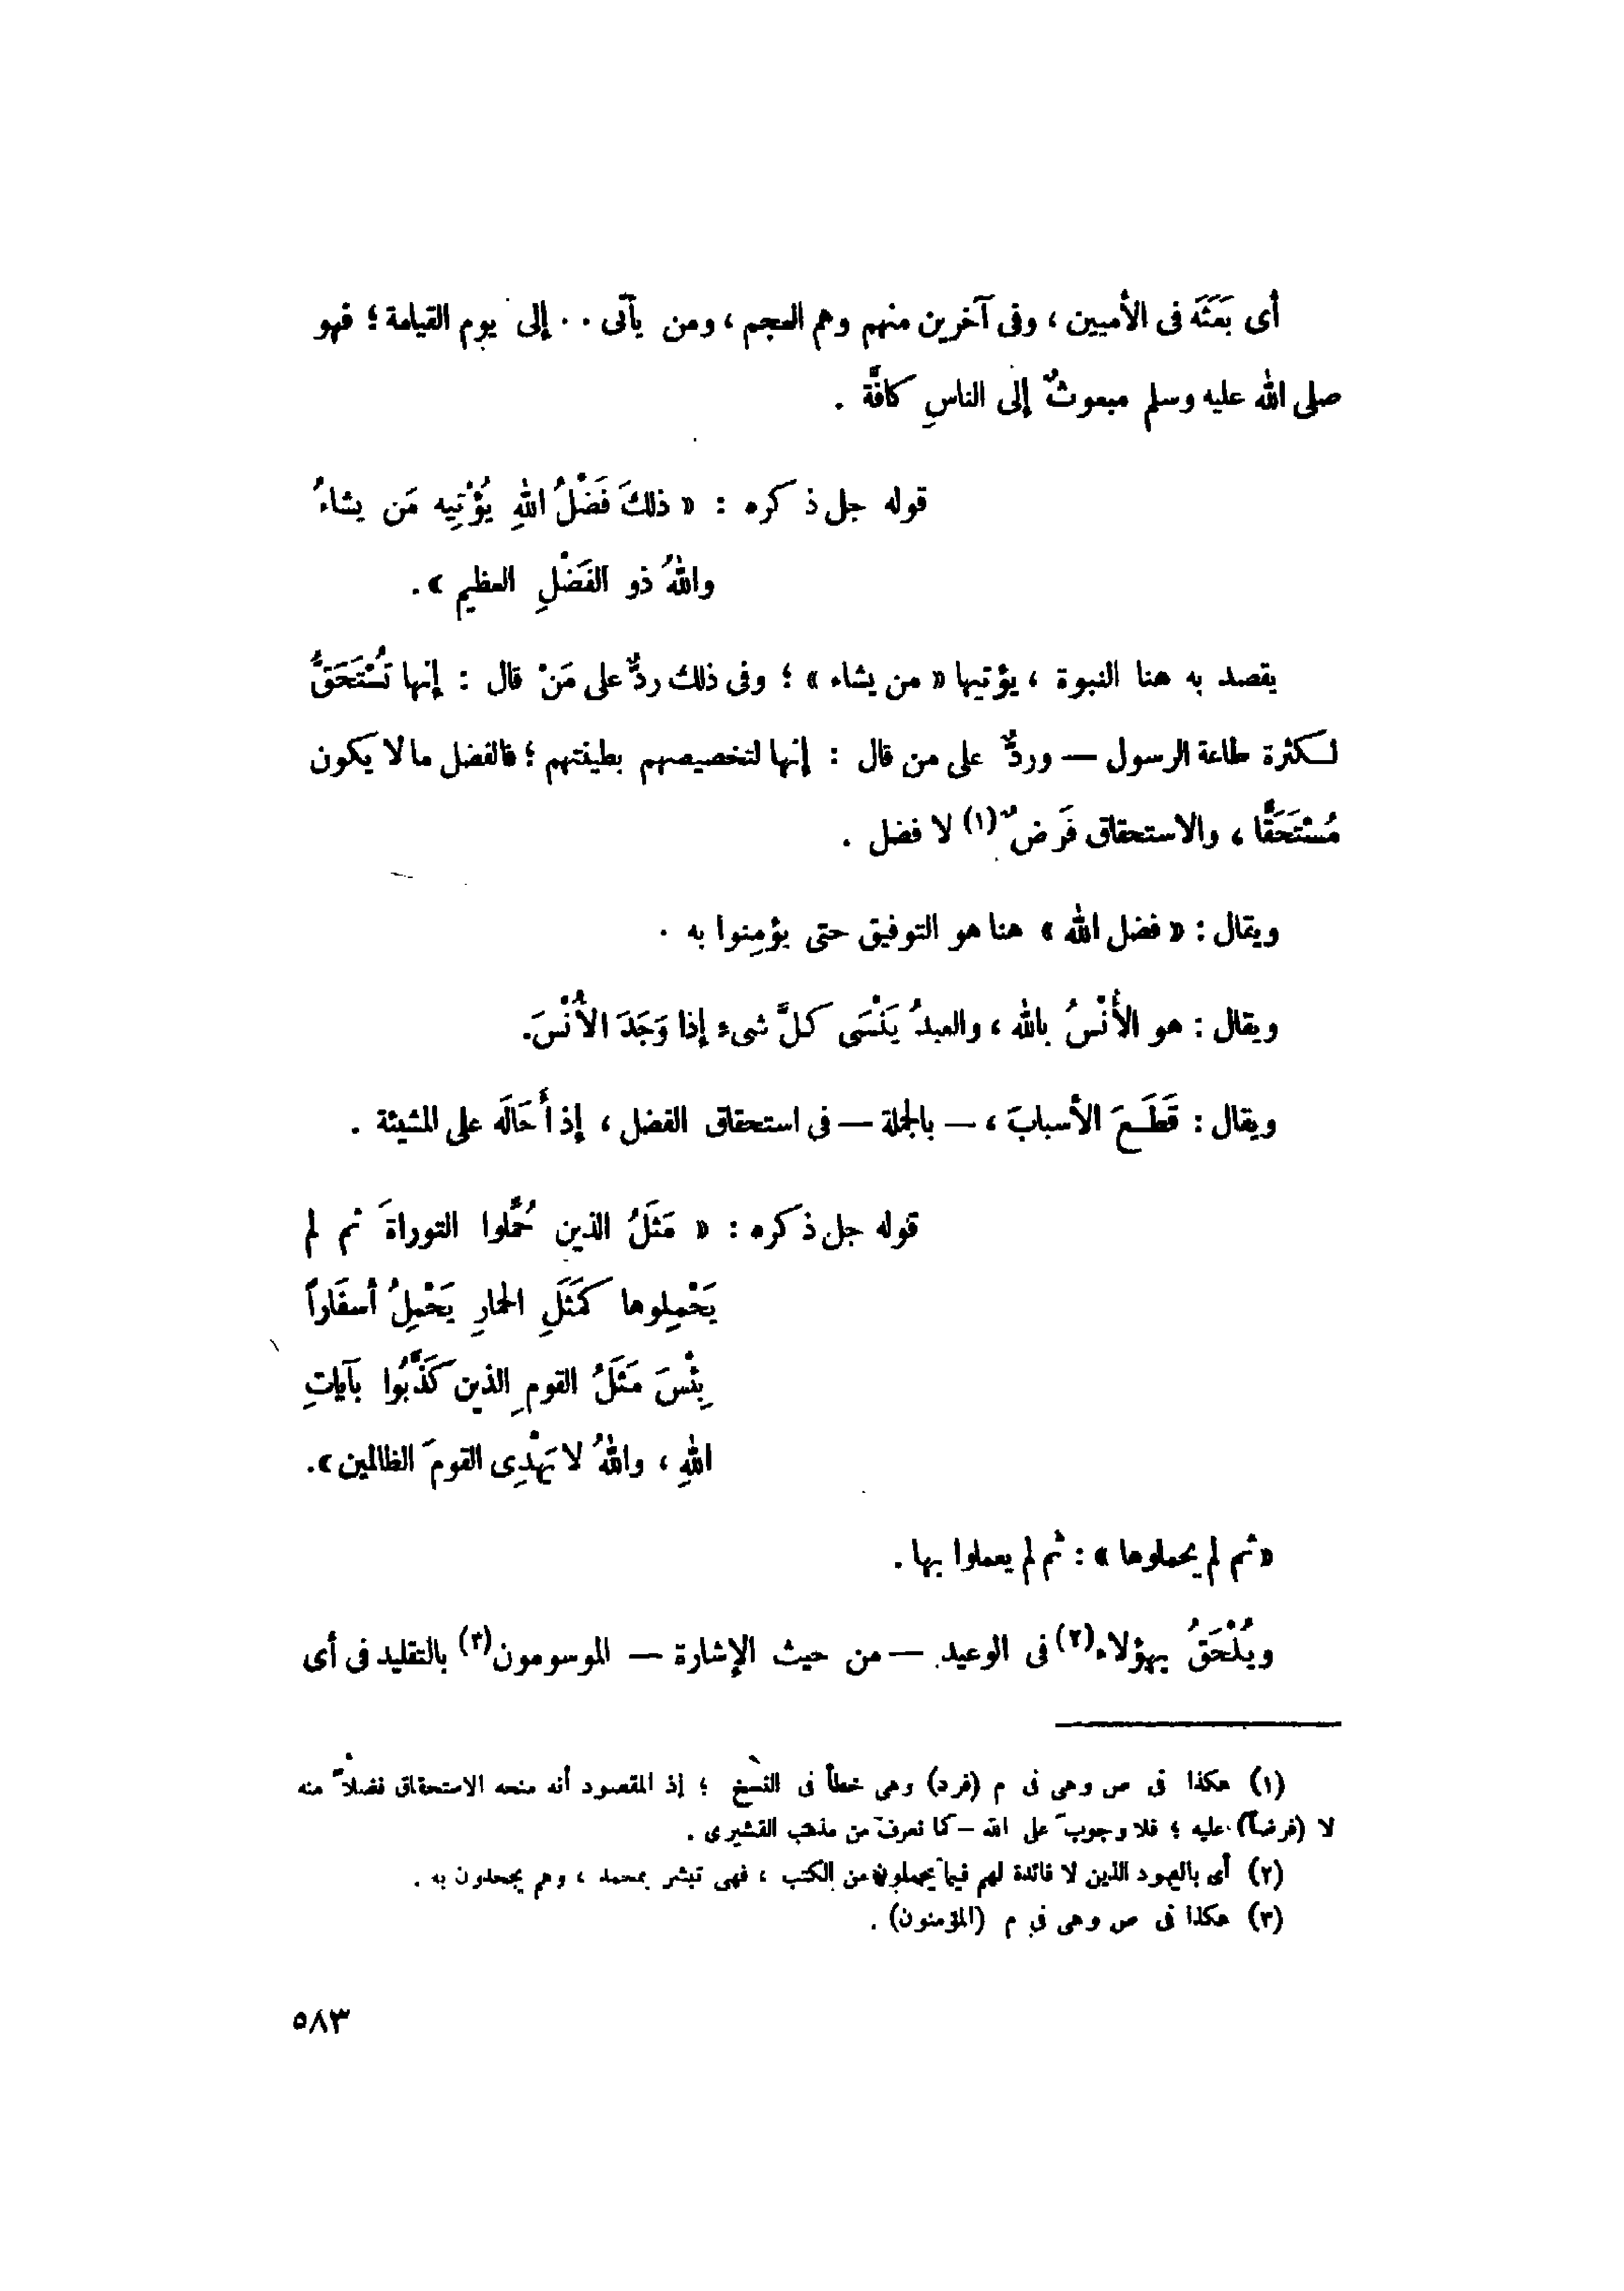 أى بَعَثَه فى الأميين ، وفى آخرين منهم وهم العجم ، ومن يأتى .. إلى يوم القيامة ؛ فهو
صلى الله عليه وسلم مبعوثٌ إلى الناسِ كافَّة .
قوله جل ذكره : « ذلكَ فَضْلُ اللهِ يُؤْتِيه مَن يشاءُ
واللهُ ذو الفَضْلِ العظيم » .
يقصد به هنا النبوة ، يؤتيها « من يشاء » ؛ وفى ذلك ردٌّ على مَنْ قال : إنها تُسْتَحَقُّ
لكثرة طاعة الرسول — وردٌّ على من قال : إنها لتخصيصهم بطينتهم ؛ فالفضل ما لا يكون
مُسْتَحَقًّا ، والاستحقاق فَرضٌ (١) لا فضل .
ويقال : « فضل الله » هنا هو التوفيق حتى يؤمِنوا به .
ويقال : هو الأُنْسُ بالله ، والعبدُ يَنْسَى كلَّ شىء إذا وَجَدَ الأُنْسَ.
ويقال : قَطَعَ الأسبابَ ، — بالجملة — فى استحقاق الفضل ، إذ أَحَالَه على المشيئة .
قوله جل ذكره : « مَثَلُ الذين حُمِّلوا التوراةَ ثم لم
يَحْمِلوها كَمَثَلِ الحمارِ يَحْمِلُ أسفَاراً
بِئْسَ مَثَلُ القومِ الذين كَذَّبُوا بآياتِ
اللهِ ، واللهُ لا يَهْدِى القومَ الظالمين ».
« ثم لم يحملوها » : ثُم لم يعملوا بها .
ويُلْحَقُ بهؤلاء (٢) فى الوعيد — من حيث الإشارة — الموسومون (٣) بالتقليد فى أى
(١) هكذا فى ص وهى فى م (فرد) وهى خطأ فى النسخ ؛ إذ المقصود أنه منحه الاستحقاق فضلاً منه
لا (فرضاً) عليه ؛ فلا وجوبَ على الله – كما نعرف من مذهب القشيرى .
(٢) أى باليهود الذين لا فائدة لهم فيما يحملون من الكتب ، فهى تبشر بمحمد ، وهم يجحدون به .
(٣) هكذا فى ص وهى فى م (المؤمنون) .
٥٨٣